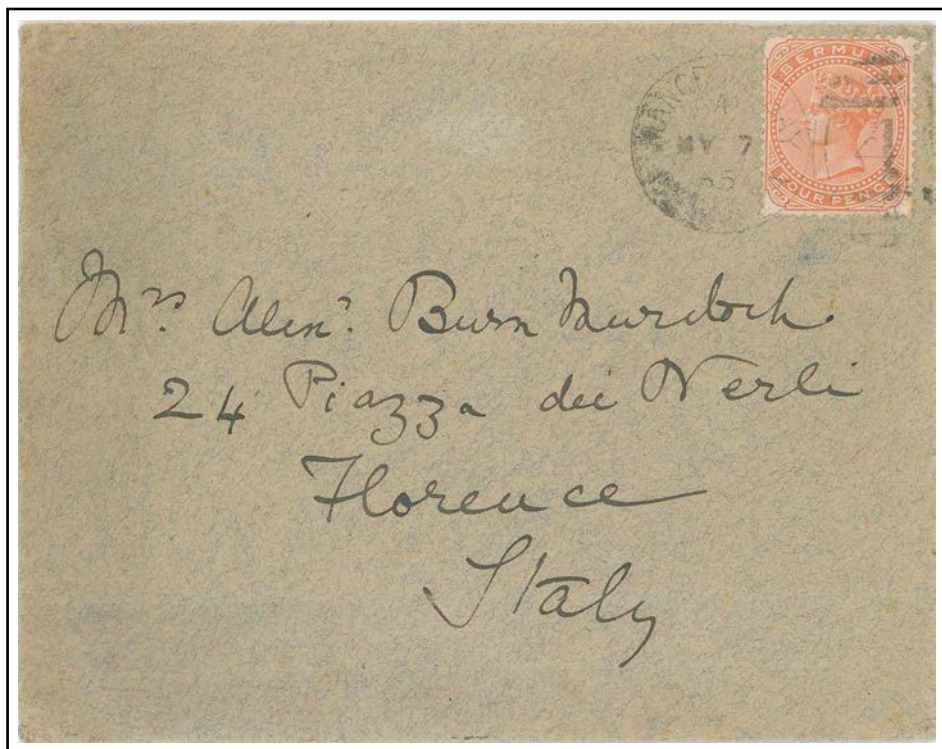 BERMUDA
MY 7
FOUR PENCE
Mrs. Alexr. Burn Murdoch
24 Piazza dei Nerli
Florence
Italy